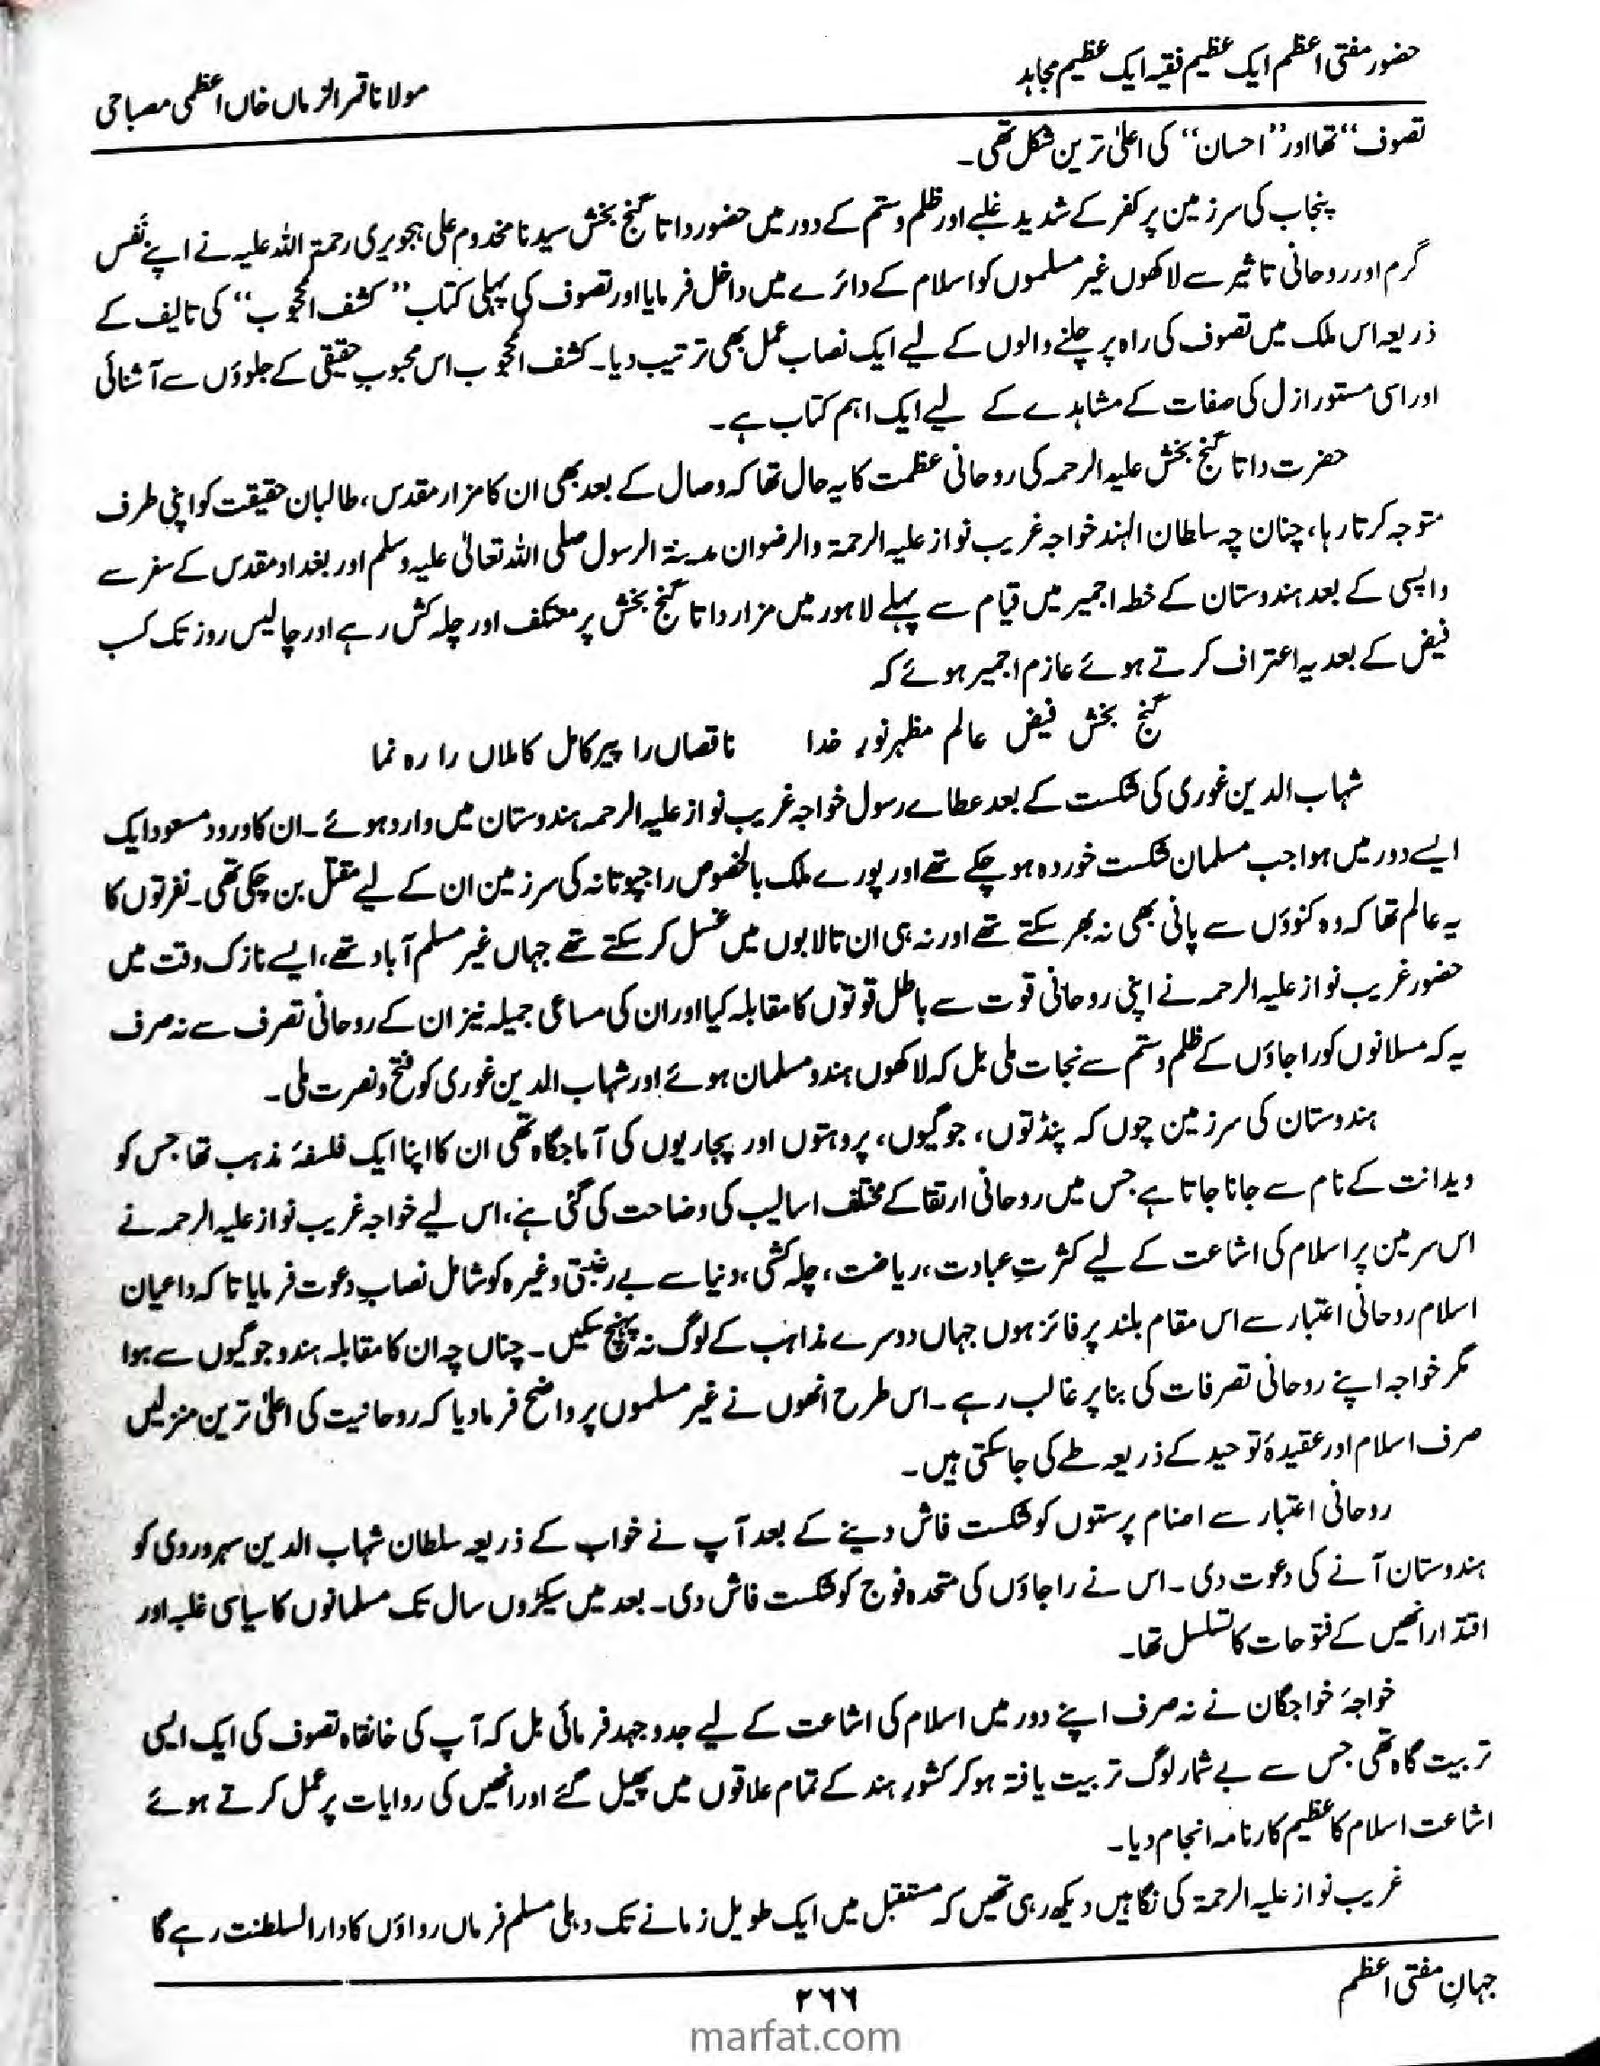 حضور مفتی اعظم ایک عظیم فقیہ ایک عظیم مجاہد
مولانا قمر الزماں خاں اعظمی مصباحی
تصوف“ تھا اور ”احسان“ کی اعلیٰ ترین شکل تھی۔
پنجاب کی سرزمین پر کفر کے شدید غلبے اور ظلم و ستم کے دور میں حضور داتا گنج بخش سیدنا مخدوم علی ہجویری رحمۃ اللہ علیہ نے اپنے نفَس
گرم اور روحانی تاثیر سے لاکھوں غیر مسلموں کو اسلام کے دائرے میں داخل فرمایا اور تصوف کی پہلی کتاب ”کشف المحجوب“ کی تالیف کے
ذریعہ اس ملک میں تصوف کی راہ پر چلنے والوں کے لیے ایک نصاب عمل بھی ترتیب دیا۔ کشف المحجوب اس محبوب حقیقی کے جلوؤں سے آشنائی
اور اسی مستور ازل کی صفات کے مشاہدے کے لیے ایک اہم کتاب ہے۔
حضرت داتا گنج بخش علیہ الرحمہ کی روحانی عظمت کا یہ حال تھا کہ وصال کے بعد بھی ان کا مزار مقدس، طالبان حقیقت کو اپنی طرف
متوجہ کرتا رہا، چنان چہ سلطان الہند خواجہ غریب نواز علیہ الرحمۃ والرضوان مدینۃ الرسول صلی اللہ تعالیٰ علیہ وسلم اور بغداد مقدس کے سفر سے
واپسی کے بعد ہندوستان کے خطہ اجمیر میں قیام سے پہلے لاہور میں مزار داتا گنج بخش پر معتکف اور چلہ کش رہے اور چالیس روز تک کسب
فیض کے بعد یہ اعتراف کرتے ہوئے عازم اجمیر ہوئے کہ
گنج بخش فیض عالم مظہر نورِ خدا ناقصاں را پیر کامل کاملاں را رہ نما
شہاب الدین غوری کی شکست کے بعد عطاے رسول خواجہ غریب نواز علیہ الرحمہ ہندوستان میں وارد ہوئے۔ ان کا ورود مسعود ایک
ایسے دور میں ہوا جب مسلمان شکست خوردہ ہو چکے تھے اور پورے ملک بالخصوص راجپوتانہ کی سرزمین ان کے لیے مقتل بن چکی تھی۔ نفرتوں کا
یہ عالم تھا کہ وہ کنوؤں سے پانی بھی نہ بھر سکتے تھے اور نہ ہی ان تالابوں میں غسل کر سکتے تھے جہاں غیر مسلم آباد تھے، ایسے نازک وقت میں
حضور غریب نواز علیہ الرحمہ نے اپنی روحانی قوت سے باطل قوتوں کا مقابلہ کیا اور ان کی مساعی جمیلہ نیز ان کے روحانی تصرف سے نہ صرف
یہ کہ مسلانوں کو راجاؤں کے ظلم و ستم سے نجات ملی بل کہ لاکھوں ہندو مسلمان ہوئے اور شہاب الدین غوری کو فتح و نصرت ملی۔
ہندوستان کی سرزمین چوں کہ پنڈتوں، جوگیوں، پروہتوں اور پجاریوں کی آماجگاہ تھی ان کا اپنا ایک فلسفۂ مذہب تھا جس کو
ویدانت کے نام سے جانا جاتا ہے جس میں روحانی ارتقا کے مختلف اسالیب کی وضاحت کی گئی ہے، اس لیے خواجہ غریب نواز علیہ الرحمہ نے
اس سرمین پر اسلام کی اشاعت کے لیے کثرتِ عبادت، ریاضت، چلہ کشی، دنیا سے بے رغبتی وغیرہ کو شامل نصابِ دعوت فرمایا تاکہ داعیان
اسلام روحانی اعتبار سے اس مقام بلند پر فائز ہوں جہاں دوسرے مذاہب کے لوگ نہ پہنچ سکیں۔ چناں چہ ان کا مقابلہ ہندو جوگیوں سے ہوا
مگر خواجہ اپنے روحانی تصرفات کی بنا پر غالب رہے۔ اس طرح انھوں نے غیر مسلموں پر واضح فرمادیا کہ روحانیت کی اعلیٰ ترین منزلیں
صرف اسلام اور عقیدۂ توحید کے ذریعہ طے کی جاسکتی ہیں۔
روحانی اعتبار سے اصنام پرستوں کو شکست فاش دینے کے بعد آپ نے خواب کے ذریعہ سلطان شہاب الدین سہروردی کو
ہندوستان آنے کی دعوت دی۔ اس نے راجاؤں کی متحدہ فوج کو شکست فاش دی۔ بعد میں سیکڑوں سال تک مسلمانوں کا سیاسی غلبہ اور
اقتدار انھیں کے فتوحات کا تسلسل تھا۔
خواجۂ خواجگان نے نہ صرف اپنے دور میں اسلام کی اشاعت کے لیے جدوجہد فرمائی بل کہ آپ کی خانقاہ تصوف کی ایک ایسی
تربیت گاہ تھی جس سے بے شمار لوگ تربیت یافتہ ہوکر کشورِ ہند کے تمام علاقوں میں پھیل گئے اور انھیں کی روایات پر عمل کرتے ہوئے
اشاعت اسلام کا عظیم کارنامہ انجام دیا۔
غریب نواز علیہ الرحمۃ کی نگاہیں دیکھ رہی تھیں کہ مستقبل میں ایک طویل زمانے تک دہلی مسلم فرماں رواؤں کا دارالسلطنت رہے گا
جہانِ مفتی اعظم
۲۶۶
marfat.com